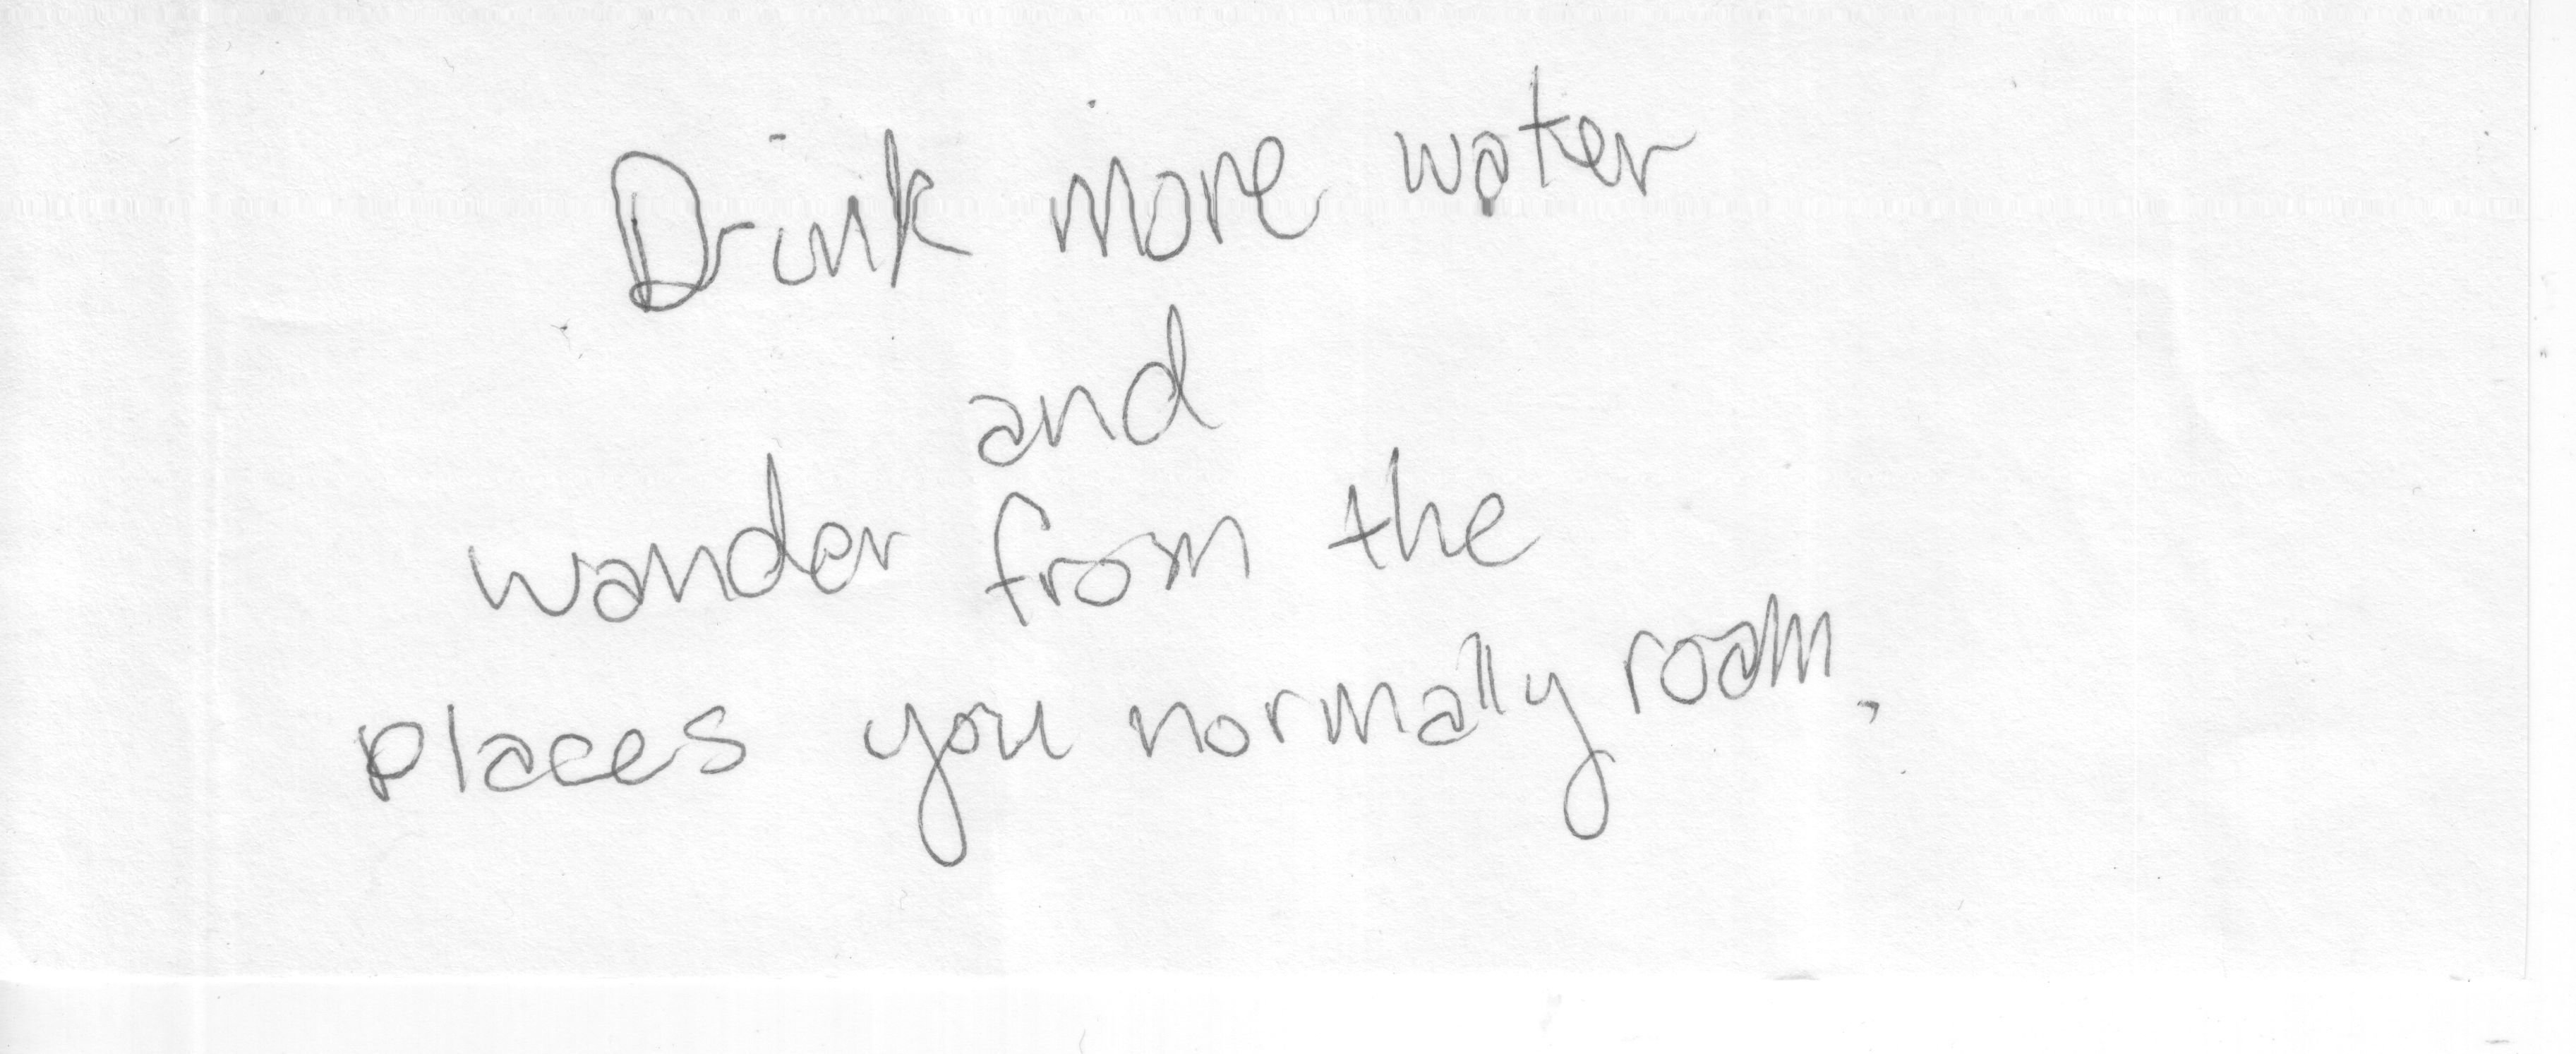 Drink more water
and
wander from the
places you normally roam.